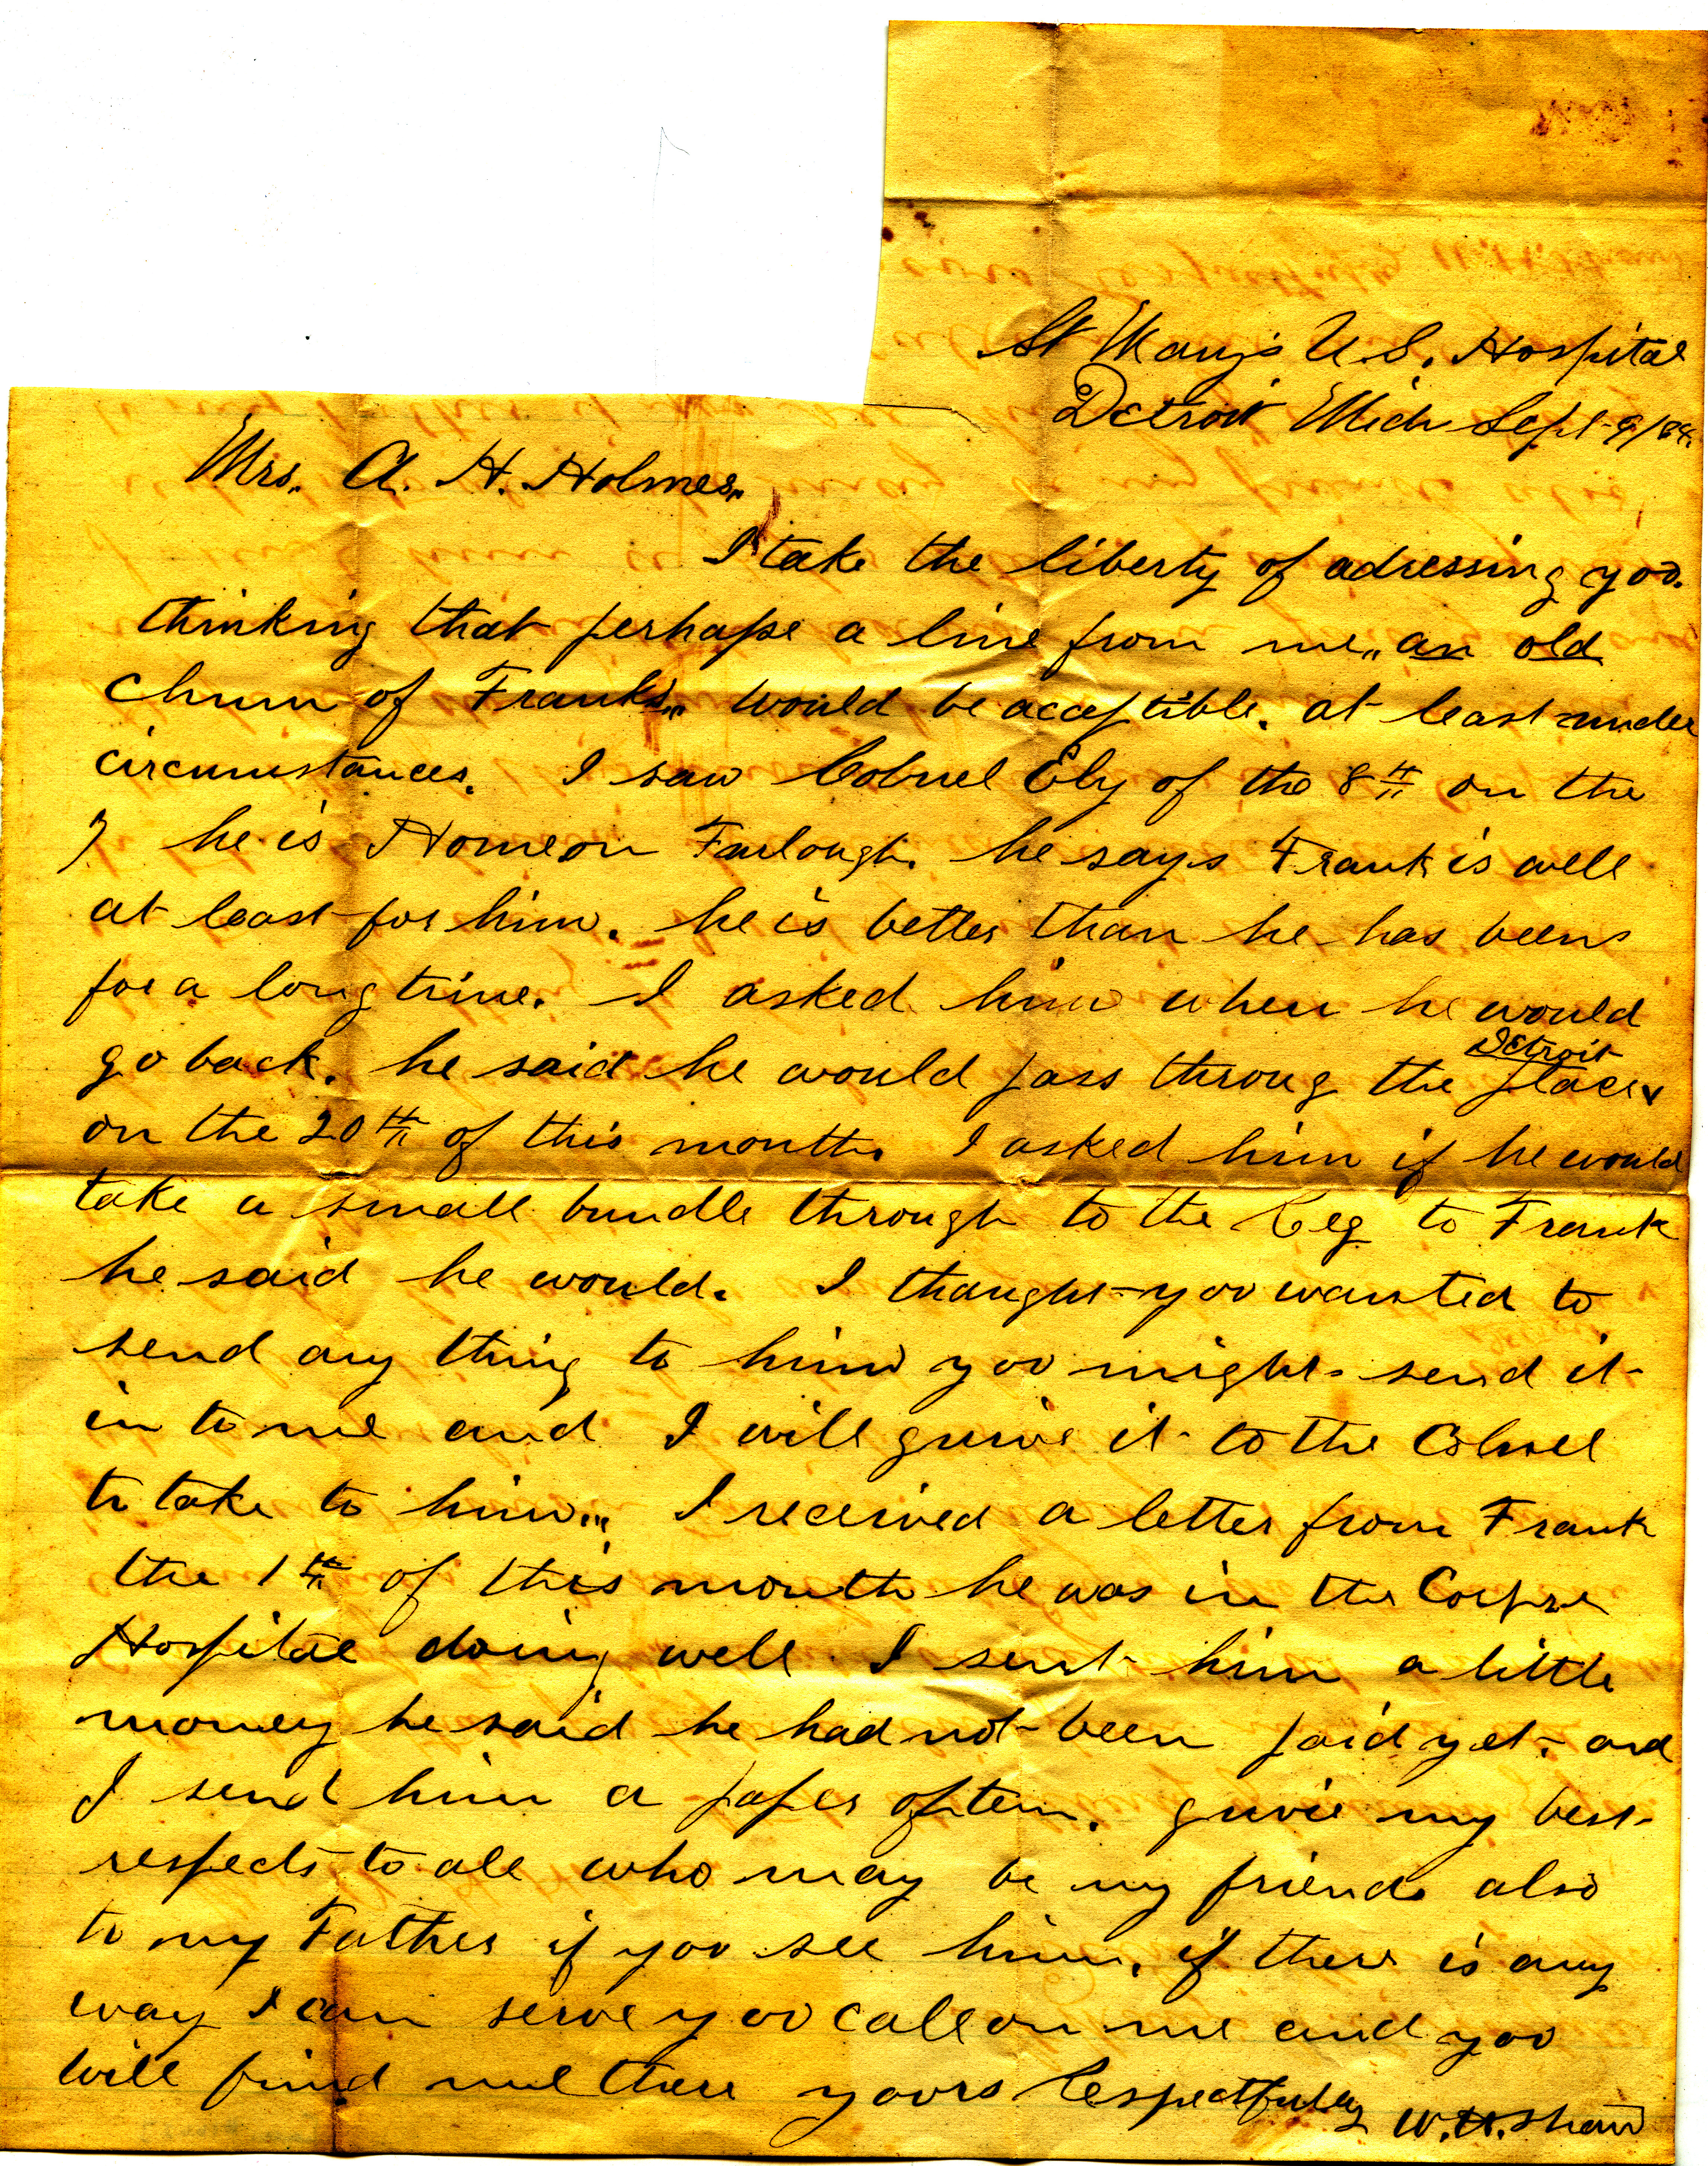 St Mary's U.S. Hospital
Detroit Mich Sept 9/64.
Mrs. A. H. Holmes.
I take the liberty of adressing yoo.
thinking that perhaps a line from me,, an old
chum of Franks,, would be acceptible. at least under
circumstances. I saw Colonel Ely of the 8th on the
7 he is Home on Furlough. he says Frank is well
at least for him. he is better than he has been
for a long time. I asked him when he would
go back. he said he would pass throug the place
Detroit
on the 20th of this month. I asked him if he would
take a small bundle through to the Reg to Frank
he said he would. I thought yoo wanted to
send any thing to him yoo might send it
in to me and I will guive it to the Colnel
to take to him... I received a letter from Frank
the 1th of this month he was in the Corps
Hospital doing well. I sent him a little
money he said he had not been paid yet. and
I send him a paper oftem. guive my best
respects to all who may be my friends also
to my Father if yoo see him. if there is any
way I can serve yoo call on me and yoo
will find me there yoors Respectfully W.H. Shaw